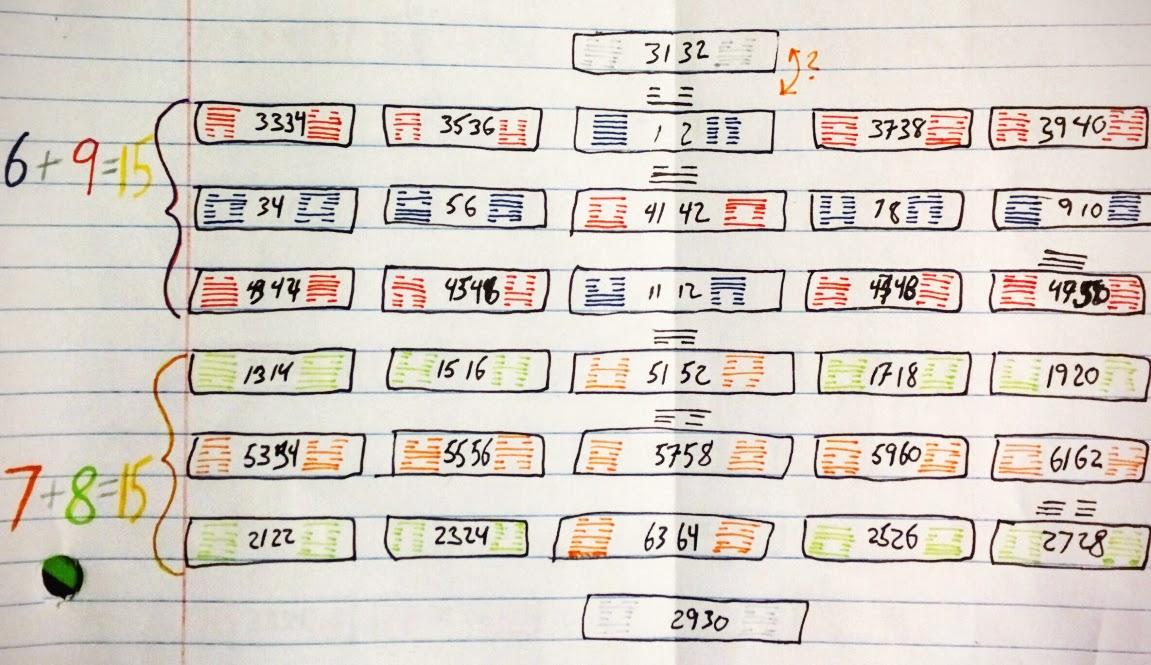 31 32
?
33 34 35 36 1 2 37 38 39 40
6+9=15
3 4 5 6 41 42 7 8 9 10
43 44 45 46 11 12 47 48 49 50
13 14 15 16 51 52 17 18 19 20
53 54 55 56 57 58 59 60 61 62
7+8=15
21 22 23 24 63 64 25 26 27 28
29 30